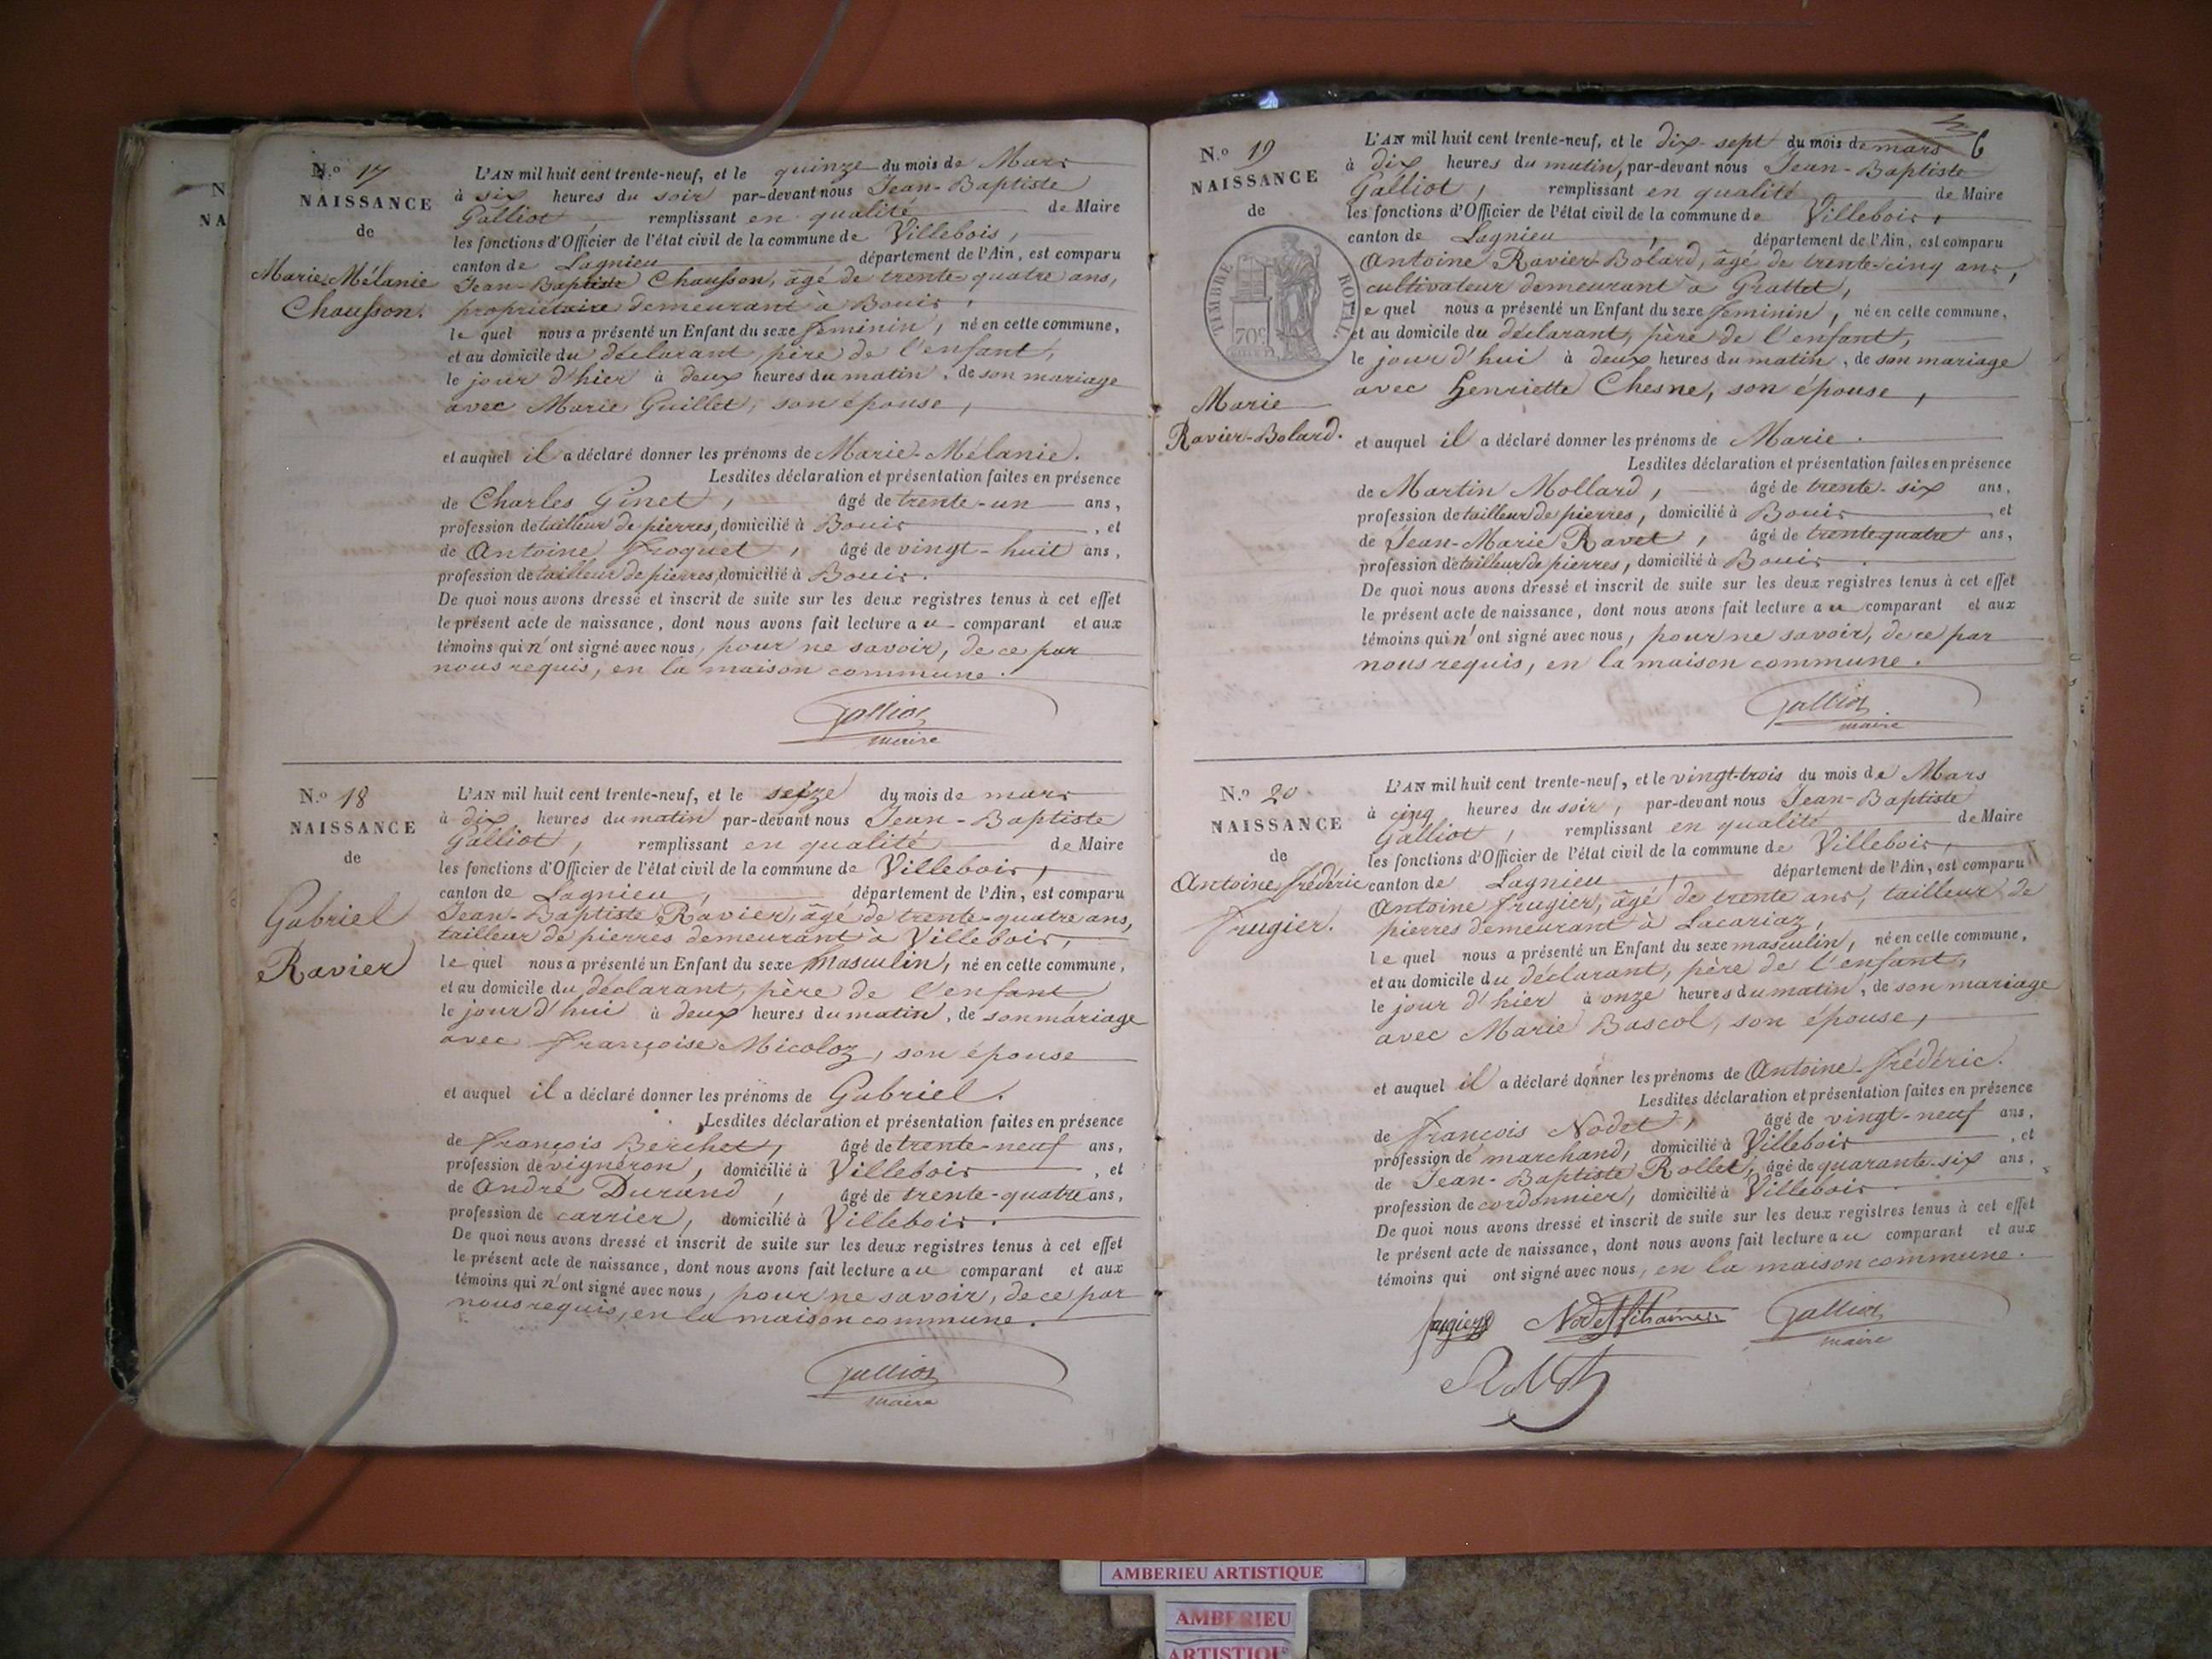 N.o 17
NAISSANCE
de
Marie Mélanie
Chausson.
L'AN mil huit cent trente-neuf, et le quinze du mois de Mars
à six heures du soir par-devant nous Jean-Baptiste
Galliot, remplissant en qualité de Maire
les fonctions d'Officier de l'état civil de la commune de Villebois,
canton de Lagnieu département de l'Ain, est comparu
Jean-Baptiste Chausson, âgé de trente-quatre ans,
propriétaire demeurant à Bouis,
le quel nous a présenté un Enfant du sexe feminin, né en cette commune,
et au domicile du déclarant, père de l'enfant,
le jour d'hier à deux heures du matin, de son mariage
avec Marie Guillet, son épouse,
et auquel il a déclaré donner les prénoms de Marie-Mélanie.
Lesdites déclaration et présentation faites en présence
de Charles Ginet, âgé de trente-un ans,
profession de tailleur de pierres, domicilié à Bouis, et
de Antoine Froquet, âgé de vingt-huit ans,
profession de tailleur de pierres, domicilié à Bouis.
De quoi nous avons dressé et inscrit de suite sur les deux registres tenus à cet effet
le présent acte de naissance, dont nous avons fait lecture au comparant et aux
témoins qui n'ont signé avec nous, pour ne savoir, de ce par
nous requis, en la maison commune.
Galliot
maire
N.o 18
NAISSANCE
de
Gabriel
Ravier
L'AN mil huit cent trente-neuf, et le seize du mois de mars
à dix heures du matin par-devant nous Jean-Baptiste
Galliot, remplissant en qualité de Maire
les fonctions d'Officier de l'état civil de la commune de Villebois,
canton de Lagnieu, département de l'Ain, est comparu
Jean-Baptiste Ravier, âgé de trente-quatre ans,
tailleur de pierres demeurant à Villebois,
le quel nous a présenté un Enfant du sexe masculin, né en cette commune,
et au domicile du déclarant, père de l'enfant
le jour d'hui à deux heures du matin, de son mariage
avec Françoise Micoloz, son épouse
et auquel il a déclaré donner les prénoms de Gabriel.
Lesdites déclaration et présentation faites en présence
de François Berchet, âgé de trente-neuf ans,
profession de vigneron, domicilié à Villebois, et
de André Durand, âgé de trente-quatre ans,
profession de carrier, domicilié à Villebois.
De quoi nous avons dressé et inscrit de suite sur les deux registres tenus à cet effet
le présent acte de naissance, dont nous avons fait lecture au comparant et aux
témoins qui n'ont signé avec nous, pour ne savoir, de ce par
nous requis, en la maison commune.
Galliot
maire
6
N.o 19
NAISSANCE
de
TIMBRE ROYAL
70c
Marie
Ravier-Bolard.
L'AN mil huit cent trente-neuf, et le dix-sept du mois de mars
à dix heures du matin, par-devant nous Jean-Baptiste
Galliot, remplissant en qualité de Maire
les fonctions d'Officier de l'état civil de la commune de Villebois,
canton de Lagnieu, département de l'Ain, est comparu
Antoine Ravier-Bolard, âgé de trente-cinq ans,
cultivateur demeurant à Grattet,
le quel nous a présenté un Enfant du sexe feminin, né en cette commune,
et au domicile du déclarant, père de l'enfant,
le jour d'hui à deux heures du matin, de son mariage
avec Henriette Chesne, son épouse,
et auquel il a déclaré donner les prénoms de Marie.
Lesdites déclaration et présentation faites en présence
de Martin Mollard, âgé de trente-six ans,
profession de tailleur de pierres, domicilié à Bouis, et
de Jean-Marie Ravet, âgé de trente quatre ans,
profession de tailleur de pierres, domicilié à Bouis.
De quoi nous avons dressé et inscrit de suite sur les deux registres tenus à cet effet
le présent acte de naissance, dont nous avons fait lecture au comparant et aux
témoins qui n'ont signé avec nous, pour ne savoir, de ce par
nous requis, en la maison commune.
Galliot
maire
N.o 20
NAISSANCE
de
Antoine frédéric
Frugier.
L'AN mil huit cent trente-neuf, et le vingt-trois du mois de Mars
à cinq heures du soir, par-devant nous Jean-Baptiste
Galliot, remplissant en qualité de Maire
les fonctions d'Officier de l'état civil de la commune de Villebois,
canton de Lagnieu, département de l'Ain, est comparu
Antoine Frugier, âgé de trente ans, tailleur de
pierres demeurant à Lacariaz,
le quel nous a présenté un Enfant du sexe masculin, né en cette commune,
et au domicile du déclarant, père de l'enfant,
le jour d'hier à onze heures du matin, de son mariage
avec Marie Bascol, son épouse,
et auquel il a déclaré donner les prénoms de Antoine-frédéric.
Lesdites déclaration et présentation faites en présence
de François Nodet, âgé de vingt-neuf ans,
profession de marchand, domicilié à Villebois, et
de Jean-Baptiste Rollet, âgé de quarante-six ans,
profession de cordonnier, domicilié à Villebois.
De quoi nous avons dressé et inscrit de suite sur les deux registres tenus à cet effet
le présent acte de naissance, dont nous avons fait lecture au comparant et aux
témoins qui ont signé avec nous, en la maison commune.
frugier Nodet fils aîné Galliot
maire
Rollet
N
NA
AMBERIEU ARTISTIQUE
AMBERIEU
ARTISTIQUE